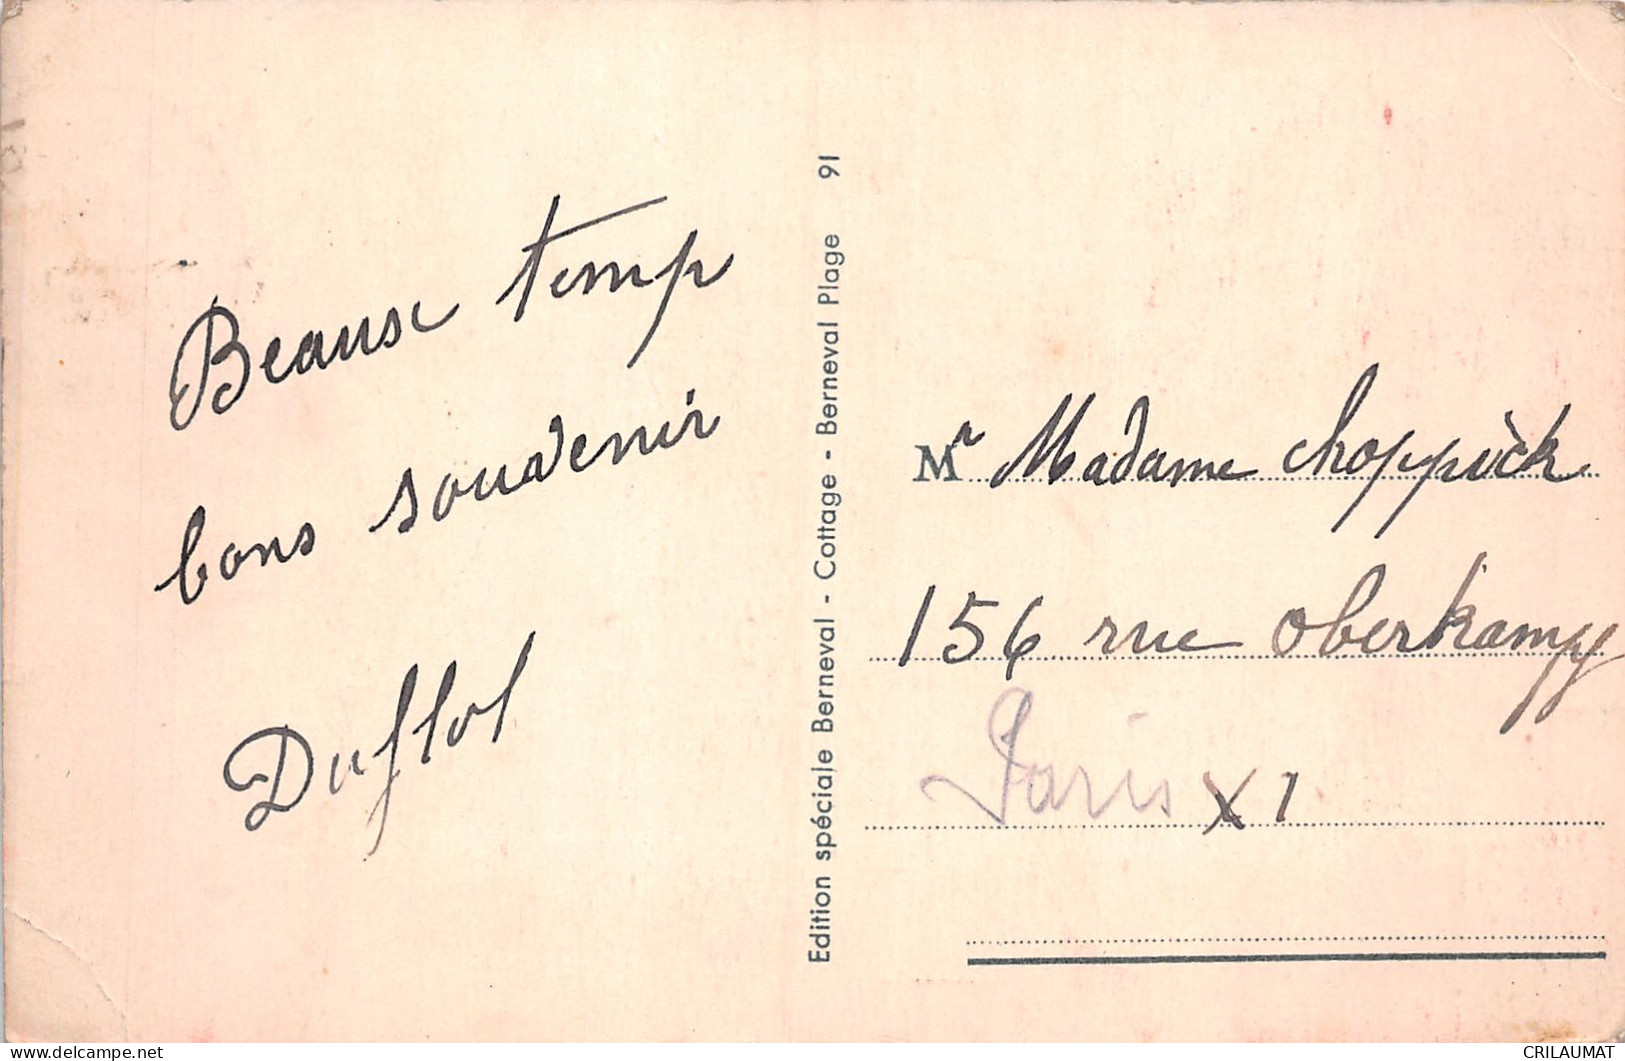 Beause temp
bons souvenir
Duflot
Edition spéciale Berneval - Cottage - Berneval Plage 91
Mr Madame choppick
156 rue Oberkampf
Paris X1
CRILAUMAT